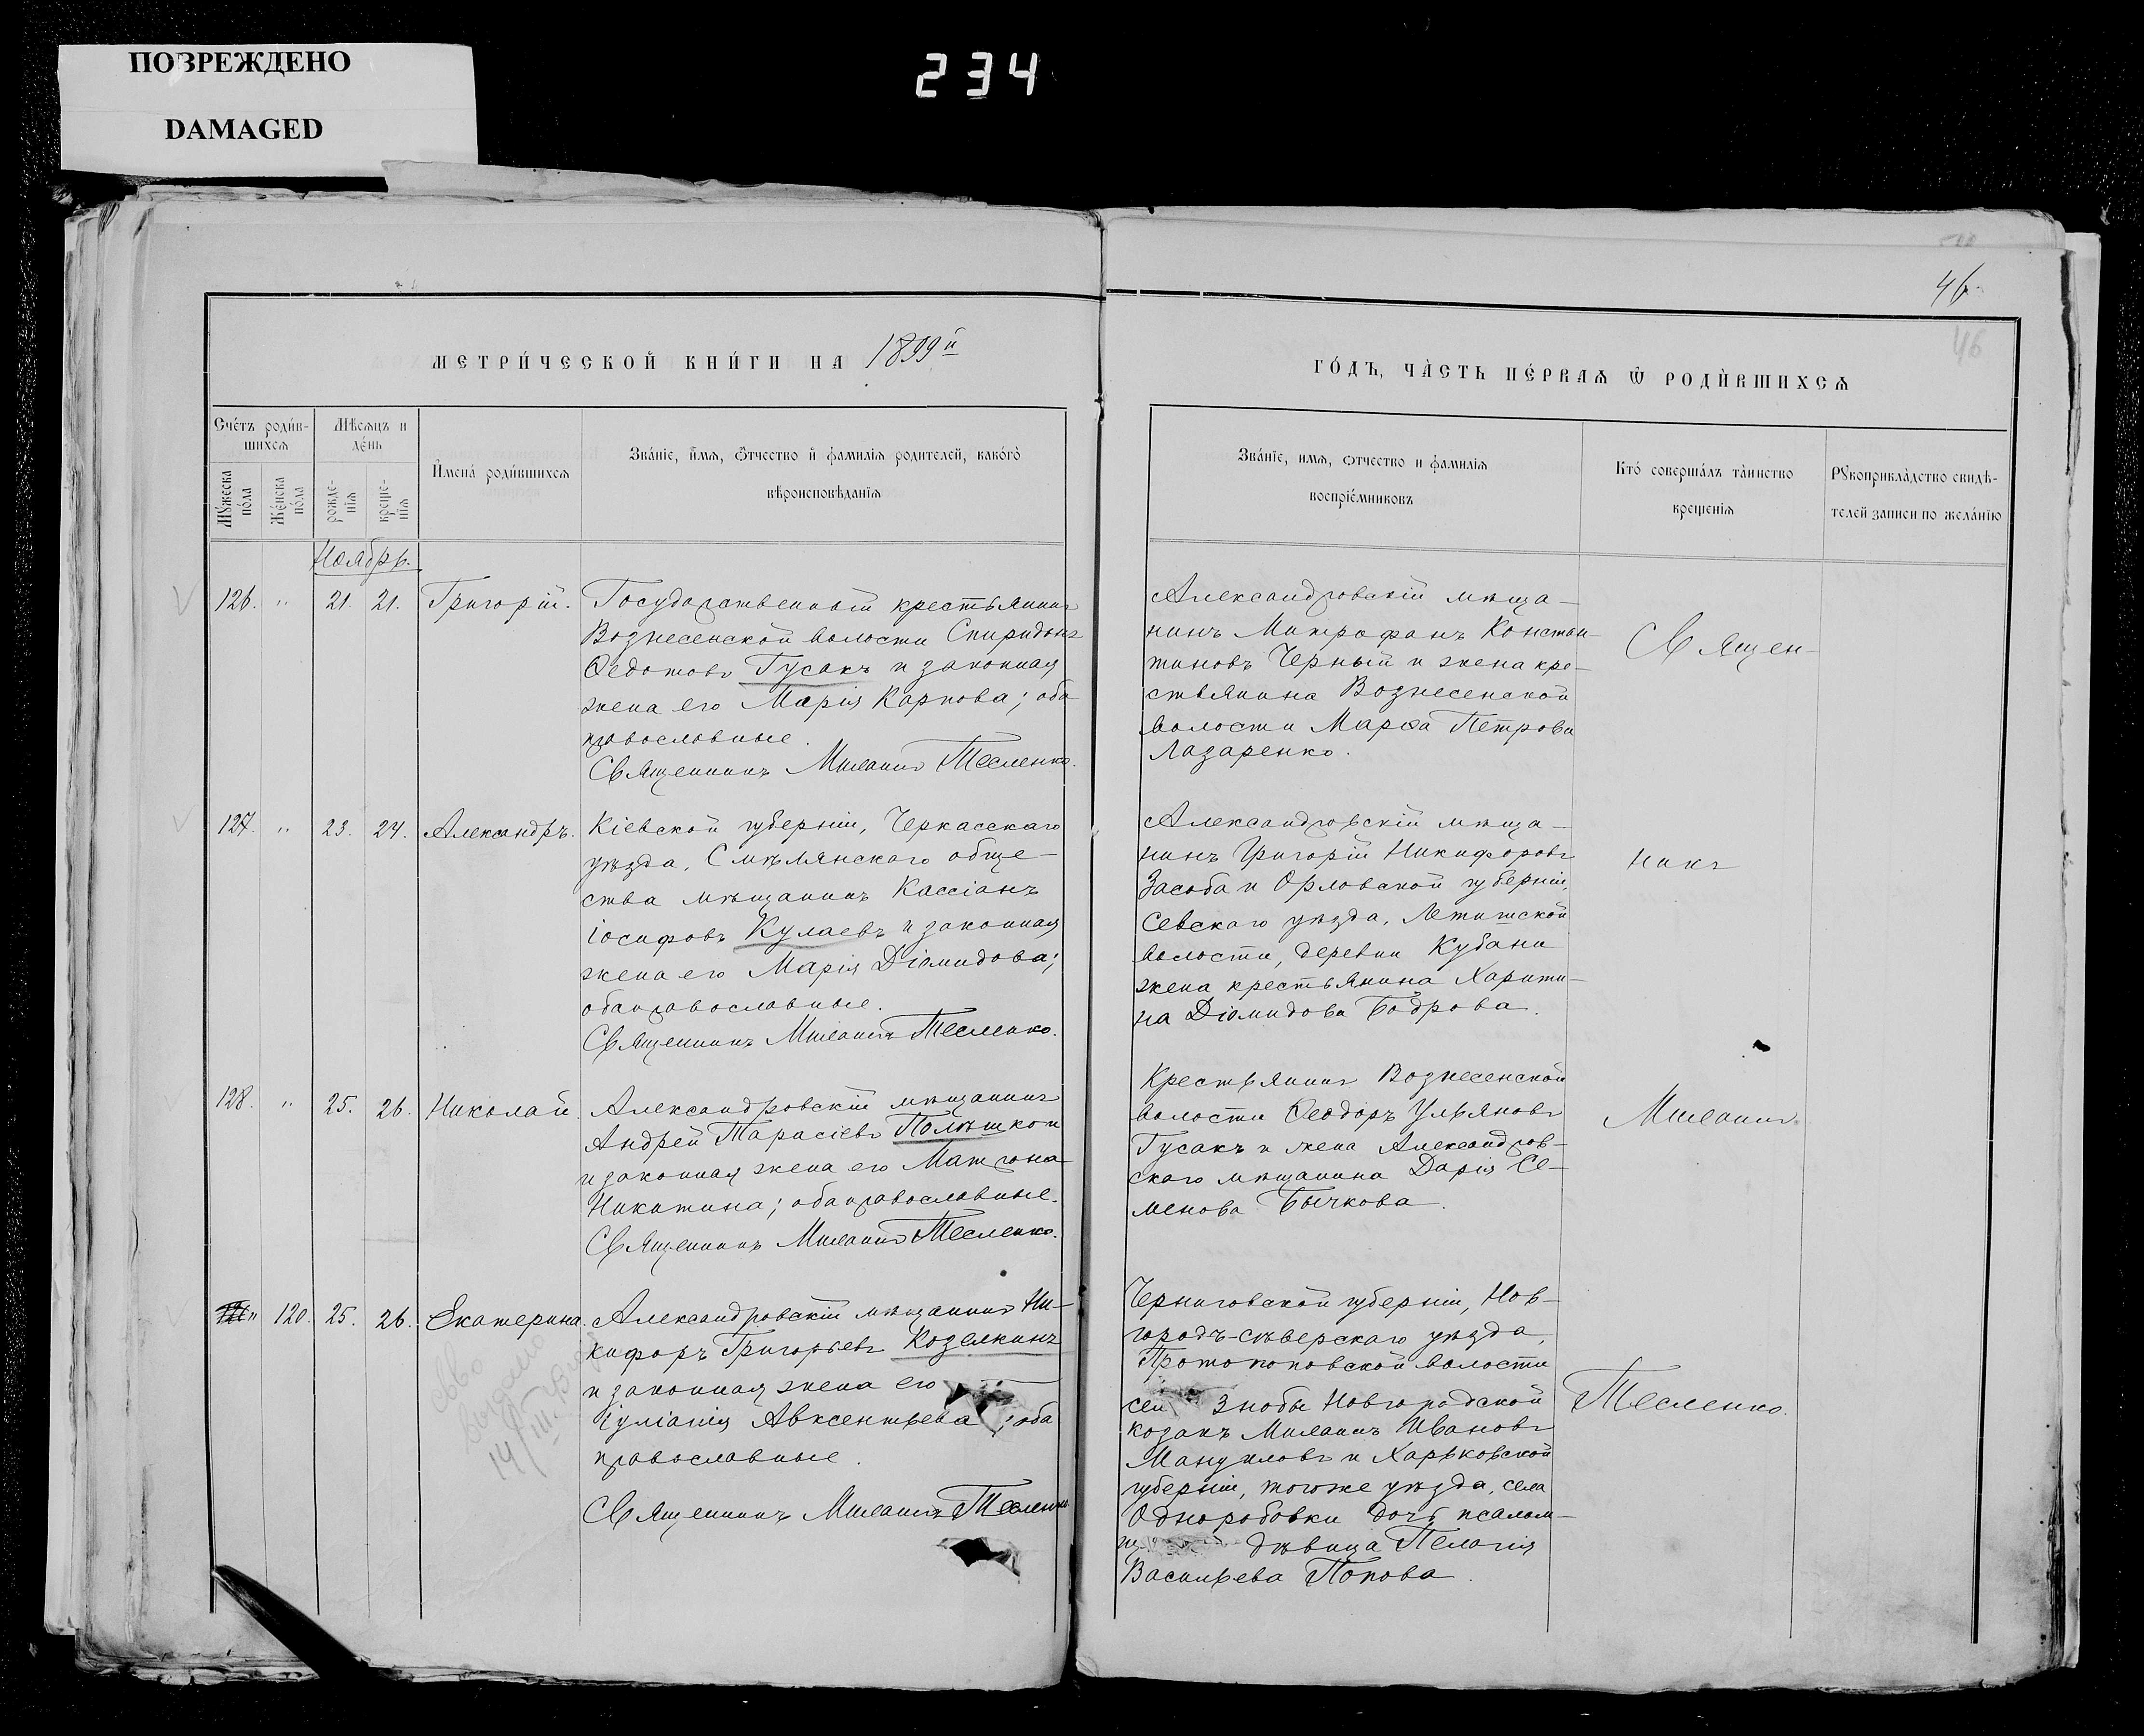 ПОВРЕЖДЕНО
DAMAGED
234
46
46
МЕТРИ́ЧЕСКОЙ КНИ́ГИ НА 1899й
ГО́ДЪ, ЧА́СТЬ ПЕ́РВАѦ Ѿ РОДИ́ВШИХСѦ
Счéтъ роди́в-
шихсѧ
Мѣсѧцъ и
дéнь
Мꙋжеска
пóла
Жéнска
пóла
рожде-
нїѧ
креще-
нїѧ
И҆менà роди́вшихсѧ
Звáнїе, и҆́мѧ, ѻ҆́тчество и҆ фамилїѧ родителей, какóгò
вѣроисповѣданїѧ
Звáнїе, имѧ, ѻтчество и фамилїѧ
воспрїéмниковъ
Ктó совершáлъ тáинство
крещенїѧ
Рꙋкоприклáдство свидѣ-
телей записи по желáнїю
Ноябрь.
126. " 21. 21. Григорій.
Государственный крестьянинъ
Вознесенской волости Спиридонъ
Ѳедотовъ Гусакъ и законная
жена его Марія Карпова; оба
православные.
Священникъ Милавинъ Тесленко.
Александровскій мѣща-
нинъ Митрофанъ Констан-
тиновъ Черный и жена кре-
стьянина Вознесенской
волости Марѳа Петрова
Лазаренко.
Священ-
127. " 23. 24. Александръ.
Кіевской губерніи, Черкасскаго
уѣзда, Смѣлянскаго обще-
ства мѣщанинъ Кассіанъ
Іосифовъ Кулаевъ и законная
жена его Марія Діомидова;
оба православные.
Священникъ Тесленко.
Александровскій мѣща-
нинъ Григорій Никифоровъ
Засоба и Орловской губерніи,
Севскаго уѣзда,
волости, деревни Кубани
жена крестьянина Харити-
на Діомидова Бодрова.
никъ
128. " 25. 26. Николай.
Александровскій мѣщанинъ
Андрей Тарасіевъ
и законная жена его Матрона
Никитина; оба православные.
Священникъ Тесленко.
Крестьянинъ Вознесенской
волости Ѳеодоръ Ульяновъ
Гусакъ и жена Александров-
скаго мѣщанина Дарія Се-
менова Бычкова.
" 120. 25. 26. Екатерина.
Александровскій мѣщанинъ Ни-
кифоръ Григорьевъ Козелкинъ
и законная жена его
Іуліанія Авксентьева; оба
православные.
Священникъ Тесленко
14/III
Черниговской губерніи, Нов-
городъ-сѣверскаго уѣзда,
Протопоповской волости
Знобы Новгородской
козакъ Ивановъ
Мануиловъ и Харьковской
губерніи, тогоже уѣзда, села
Одноробовки дочь псалом-
дѣвица Пелагія
Васильева Попова.
Тесленко.